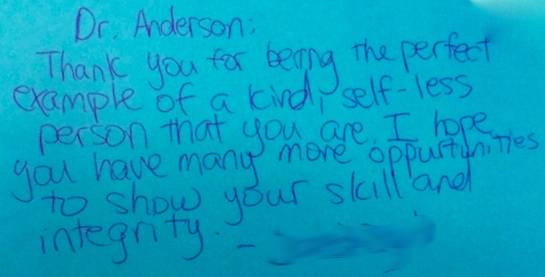 Dr. Anderson:
Thank you for being the perfect
example of a kind, self-less
person that you are. I hope
you have many more oppurtunities
to show your skill and
integrity. -